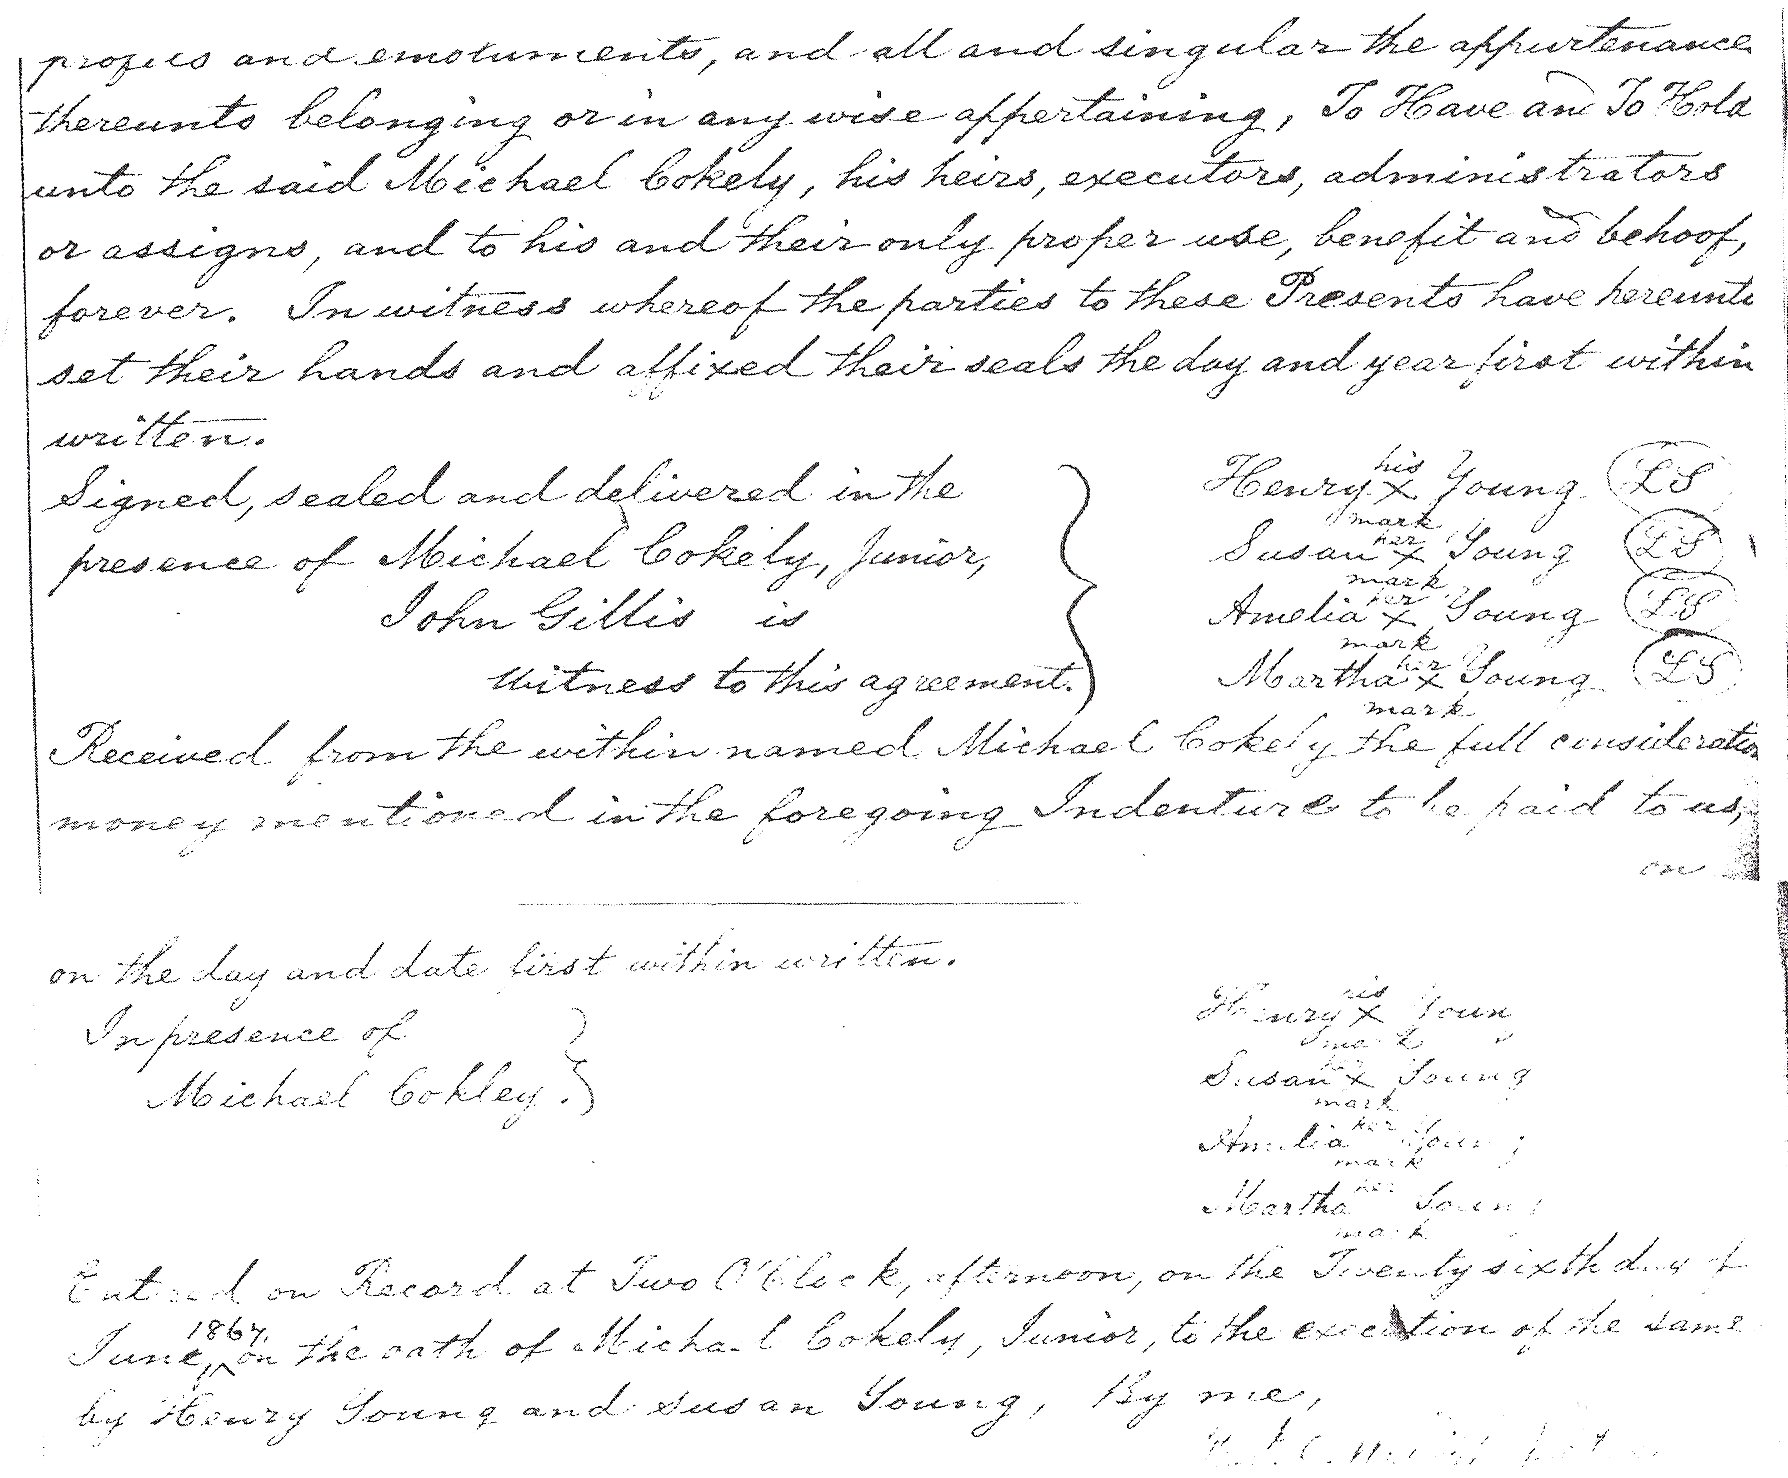 profits and emoluments, and all and singular the appurtenances
thereunto belonging or in any wise appertaining, To Have and To Hold
unto the said Michael Cokely, his heirs, executors, administrators
or assigns, and to his and their only proper use, benefit and behoof,
forever. In witness whereof the parties to these Presents have hereunto
set their hands and affixed their seals the day and year first within
written.
Signed, sealed and delivered in the
presence of Michael Cokely, Junior,
John Gillis is
Witness to this agreement.
his
Henry x Young LS
mark
her
Susan x Young LS
mark
her
Amelia x Young LS
mark
her
Martha x Young LS
mark
Received from the within named Michael Cokely the full consideration
money mentioned in the foregoing Indenture to be paid to us,
on
on the day and date first within written.
In presence of
Michael Cokley.
his
Henry x Young
mark
Susan x Young
mark
her
Amelia Young
mark
her
Martha Young
mark
Entered on Record at Two O'Clock, afternoon, on the Twenty sixth day of
1867.
June, on the oath of Michael Cokely, Junior, to the execution of the same
by Henry Young and Susan Young, By me,